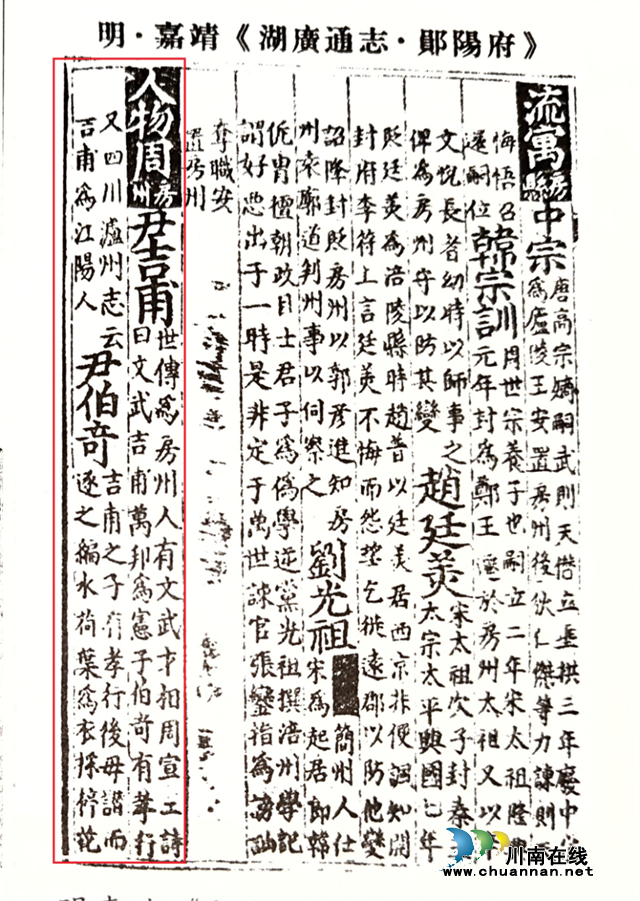 明·嘉靖《湖廣通志·鄖陽府》
流寓
房縣
中宗
唐高宗嫡嗣武則天僭立垂拱三年廢中
爲廬陵王安置房州後伏仁傑等力諫則
悔悟召
還嗣位
韓宗訓
周世宗養子也嗣立二年宋太祖隆
元年封爲鄭王遷於房州太祖又以
文悅長者幼時以師事之
俾爲房州守以防其變
趙廷美
宋太祖次子封秦
太宗太平興國七年
貶廷美爲涪陵縣時趙普以廷美居西京非便諷知開
封府李符上言廷美不悔而怨望乞徙遠郡以防他變
詔降封貶房州以郭彥進知房
州袁廓通判州事以伺察之
劉光祖
簡州人仕
宋爲起居郎韓
侂冑擅朝政目士君子爲僞學逆黨光祖撰涪州學記
謂好惡出于一時是非定于萬世諫官張釜指爲謗訕
奪職安
置房州
人物周
房州
尹吉甫
世傳爲房州人有文武才相周宣王詩
曰文武吉甫萬邦爲憲子伯奇有孝行
又四川瀘州志云
吉甫爲江陽人
尹伯奇
吉甫之子有孝行後母譖而
逐之編水荷葉爲衣採楟花
川南在线
www.chuannan.net